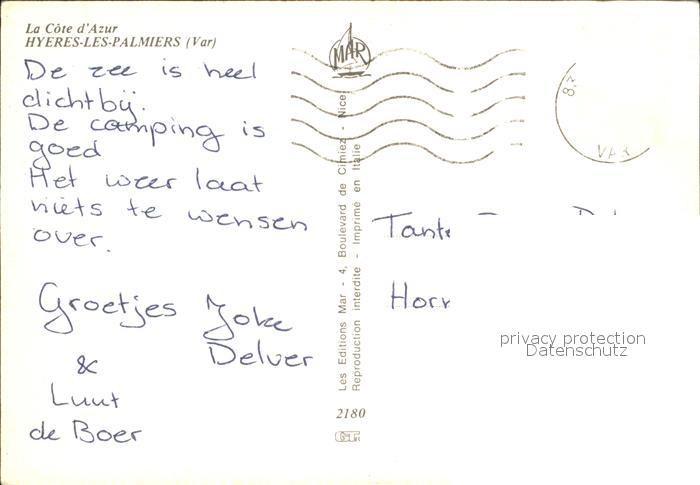 La Côte d'Azur
HYERES-LES-PALMIERS (Var)
De zee is heel
dichtbij.
De camping is
goed
Het weer laat
niets te wensen
over.
Groetjes Joke
Delver
&
Luut
de Boer
MAR
Les Editions Mar - 4, Boulevard de Cimiez - Nice
Reproduction interdite - Imprimé en Italie
2180
VAR
Tante
privacy protection
Datenschutz